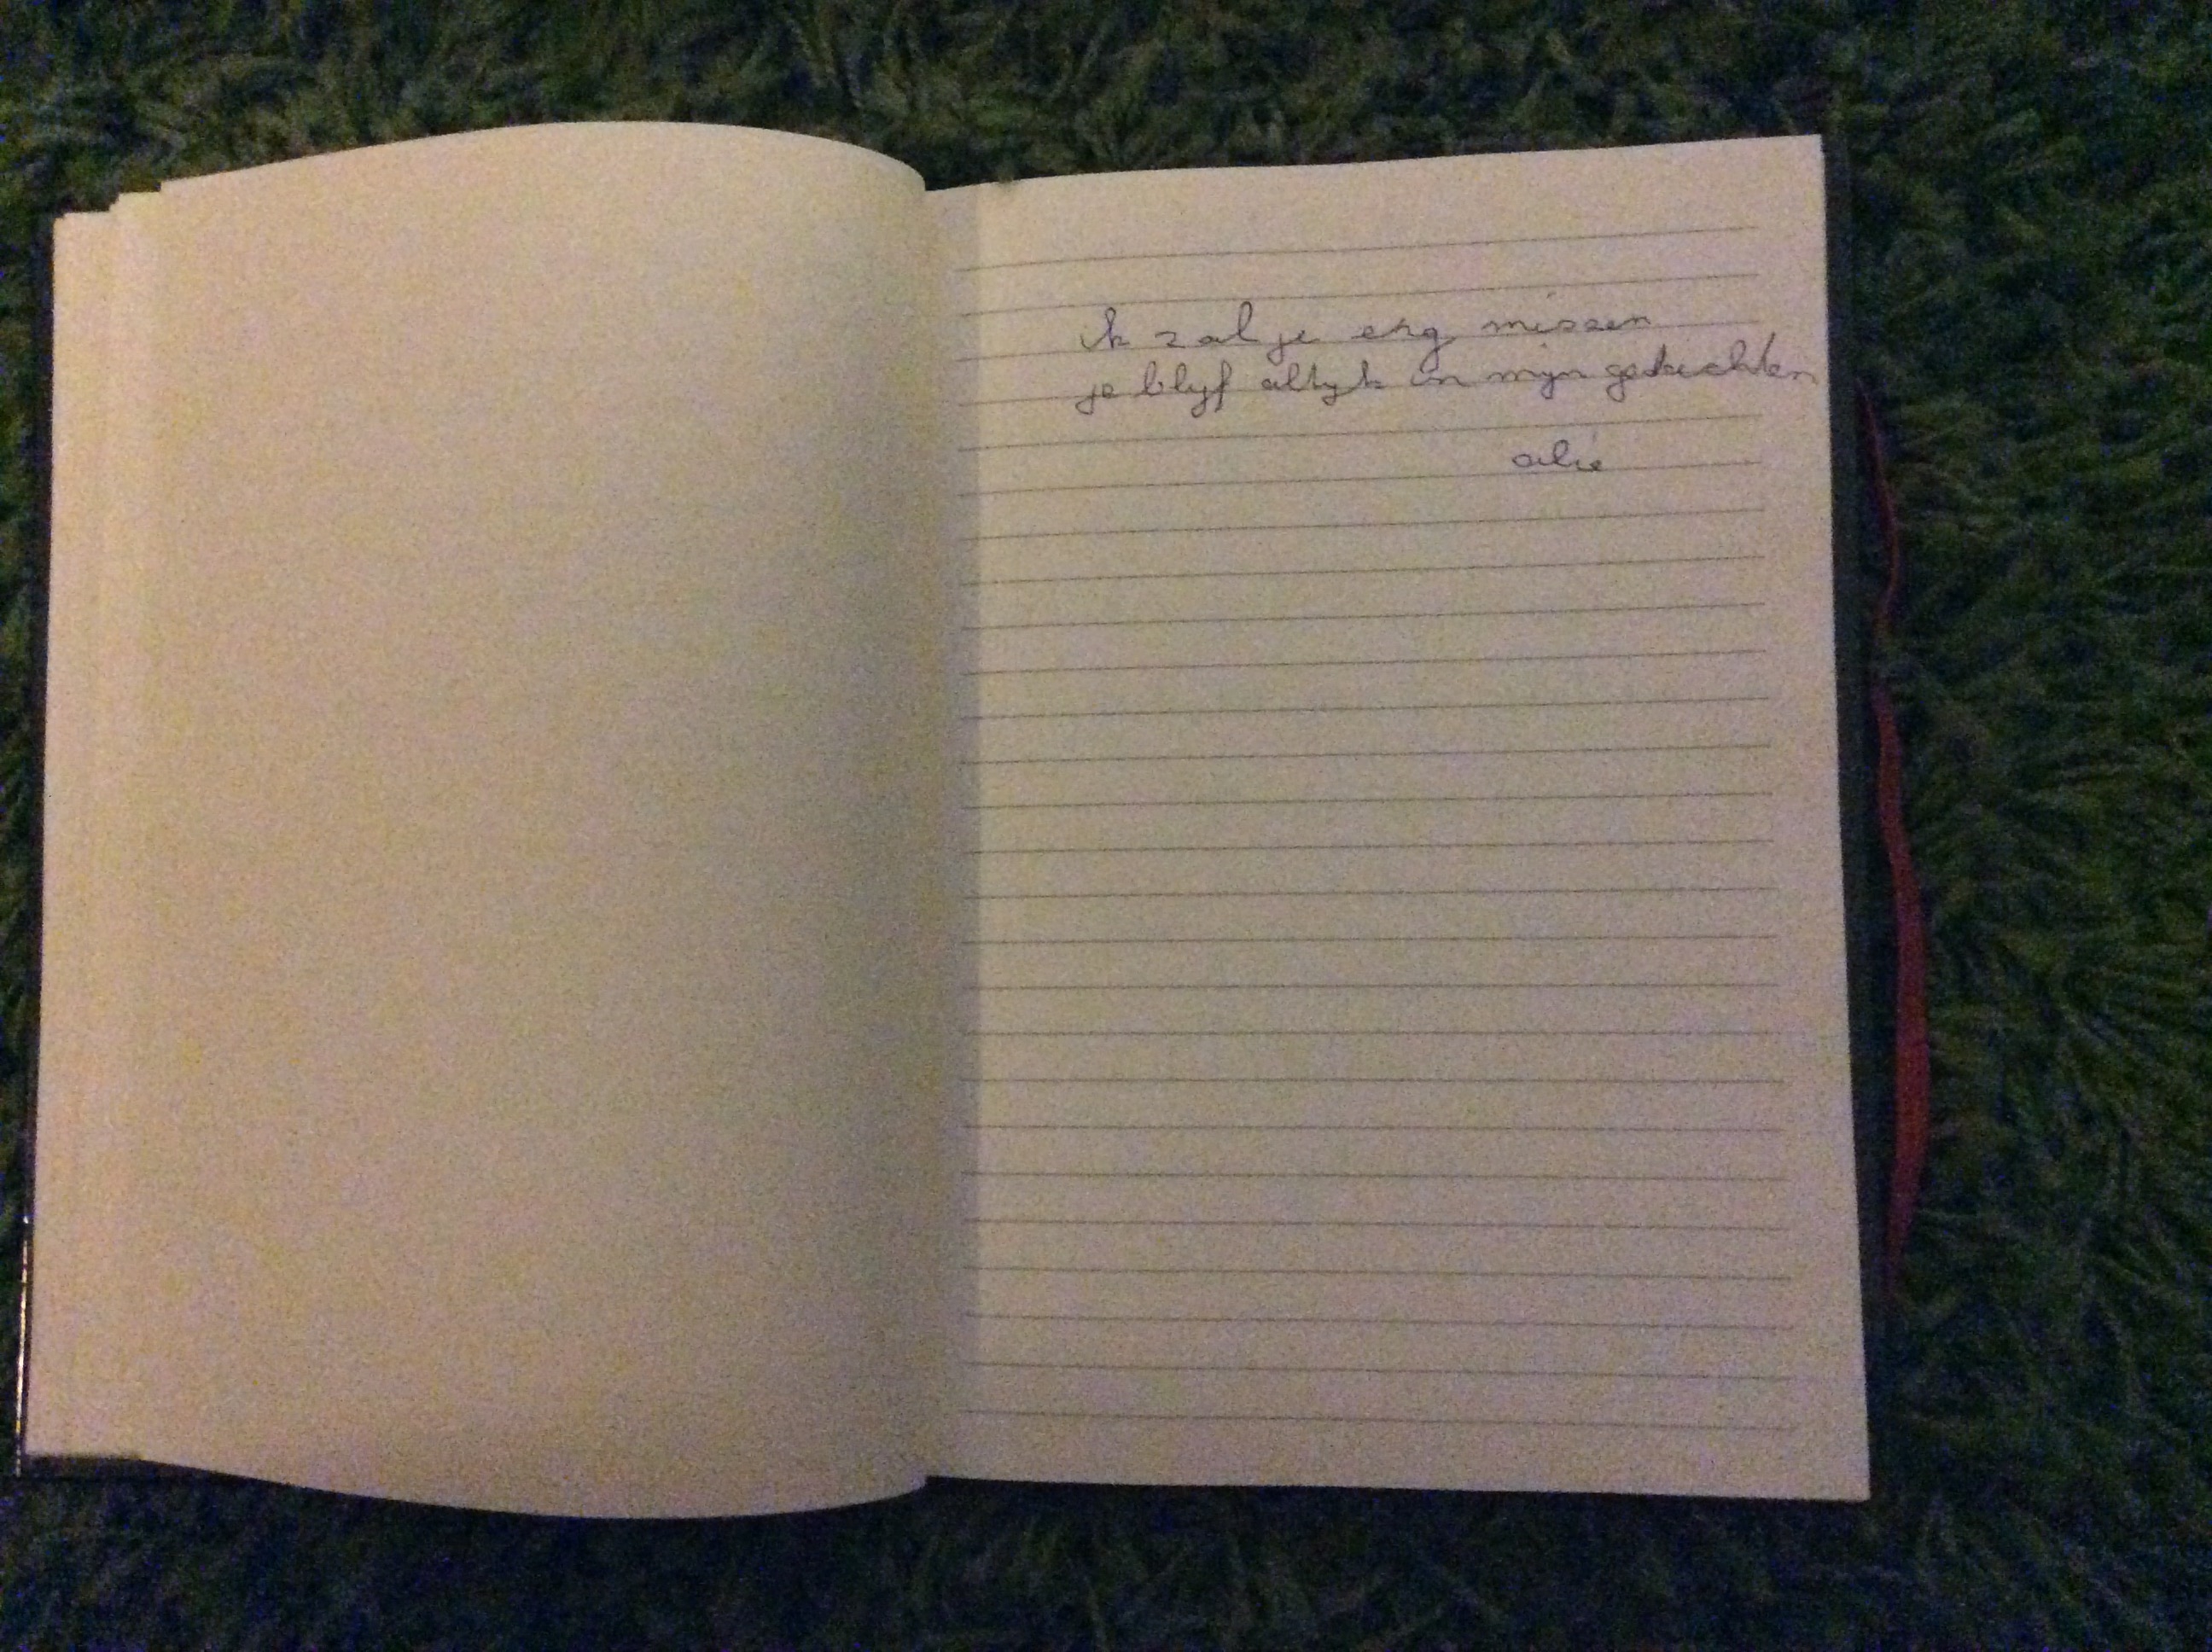 ik zal je erg missen
je blyf altyt in mijn gedachten
alie